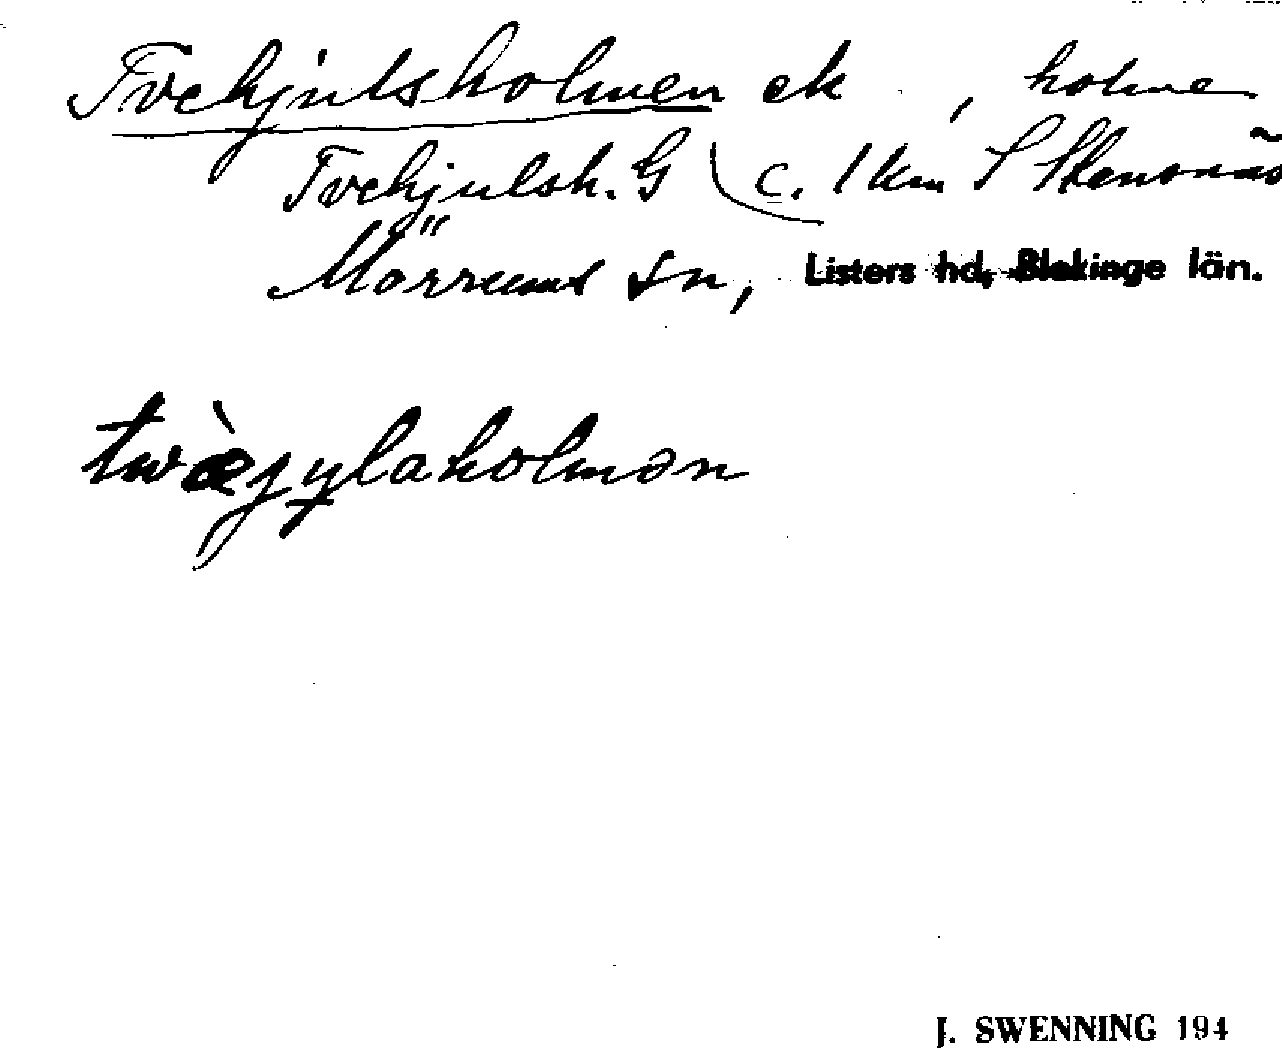 Tvehjulsholmen ek , holme
Tvehjulsh. G c. 1 km S Stensnäs
Mörrums sn, Listers hd, Blekinge län.
twæ̀jylaholmən
J. SWENNING 194